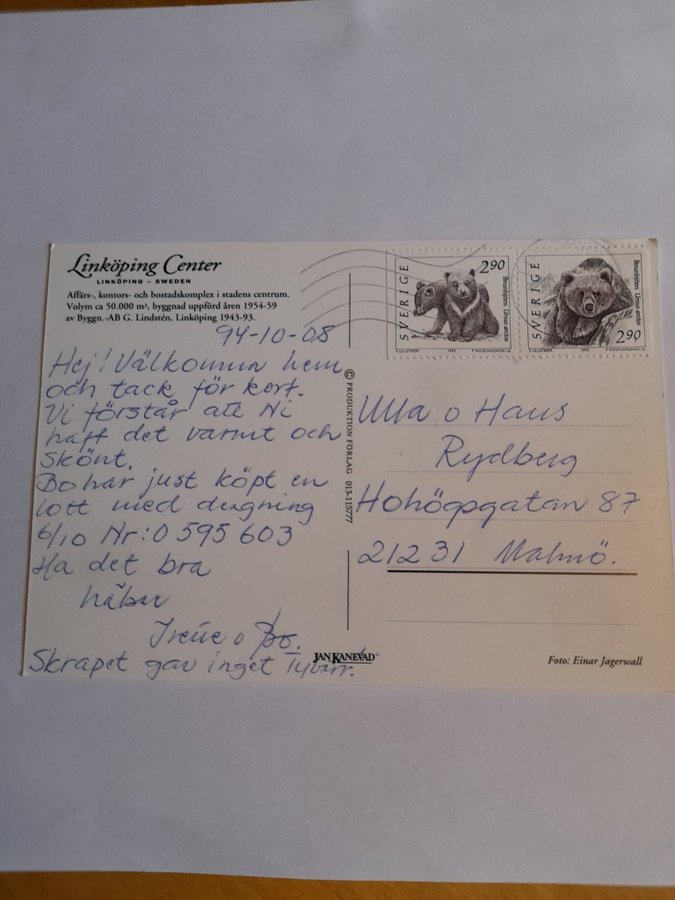 Linköping Center
LINKÖPING – SWEDEN
Affärs-, kontors- och bostadskomplex i stadens centrum.
Volym ca 50.000 m³, byggnad uppförd åren 1954-59
av Byggn.-AB G. Lindstén, Linköping 1943-93.
94-10-08
Hej! Välkomna hem
och tack för kort.
Vi förstår att Ni
haft det varmt och
skönt.
Bo har just köpt en
lott med dragning
6/10 Nr: 0 595 603
Ha det bra
hälsar
Irene o Bo.
Skrapet gav inget Tyvärr.
© PRODUKTION FÖRLAG 013-115777
JAN KANEVAD®
SVERIGE
290
Brunbjörn Ursus arctos
ULLSTRÖM
1993
SVERIGE
290
Brunbjörn Ursus arctos
ULLSTRÖM
1993
Ulla o Hans
Rydberg
Hohögsgatan 87
212 31 Malmö.
Foto: Einar Jagerwall